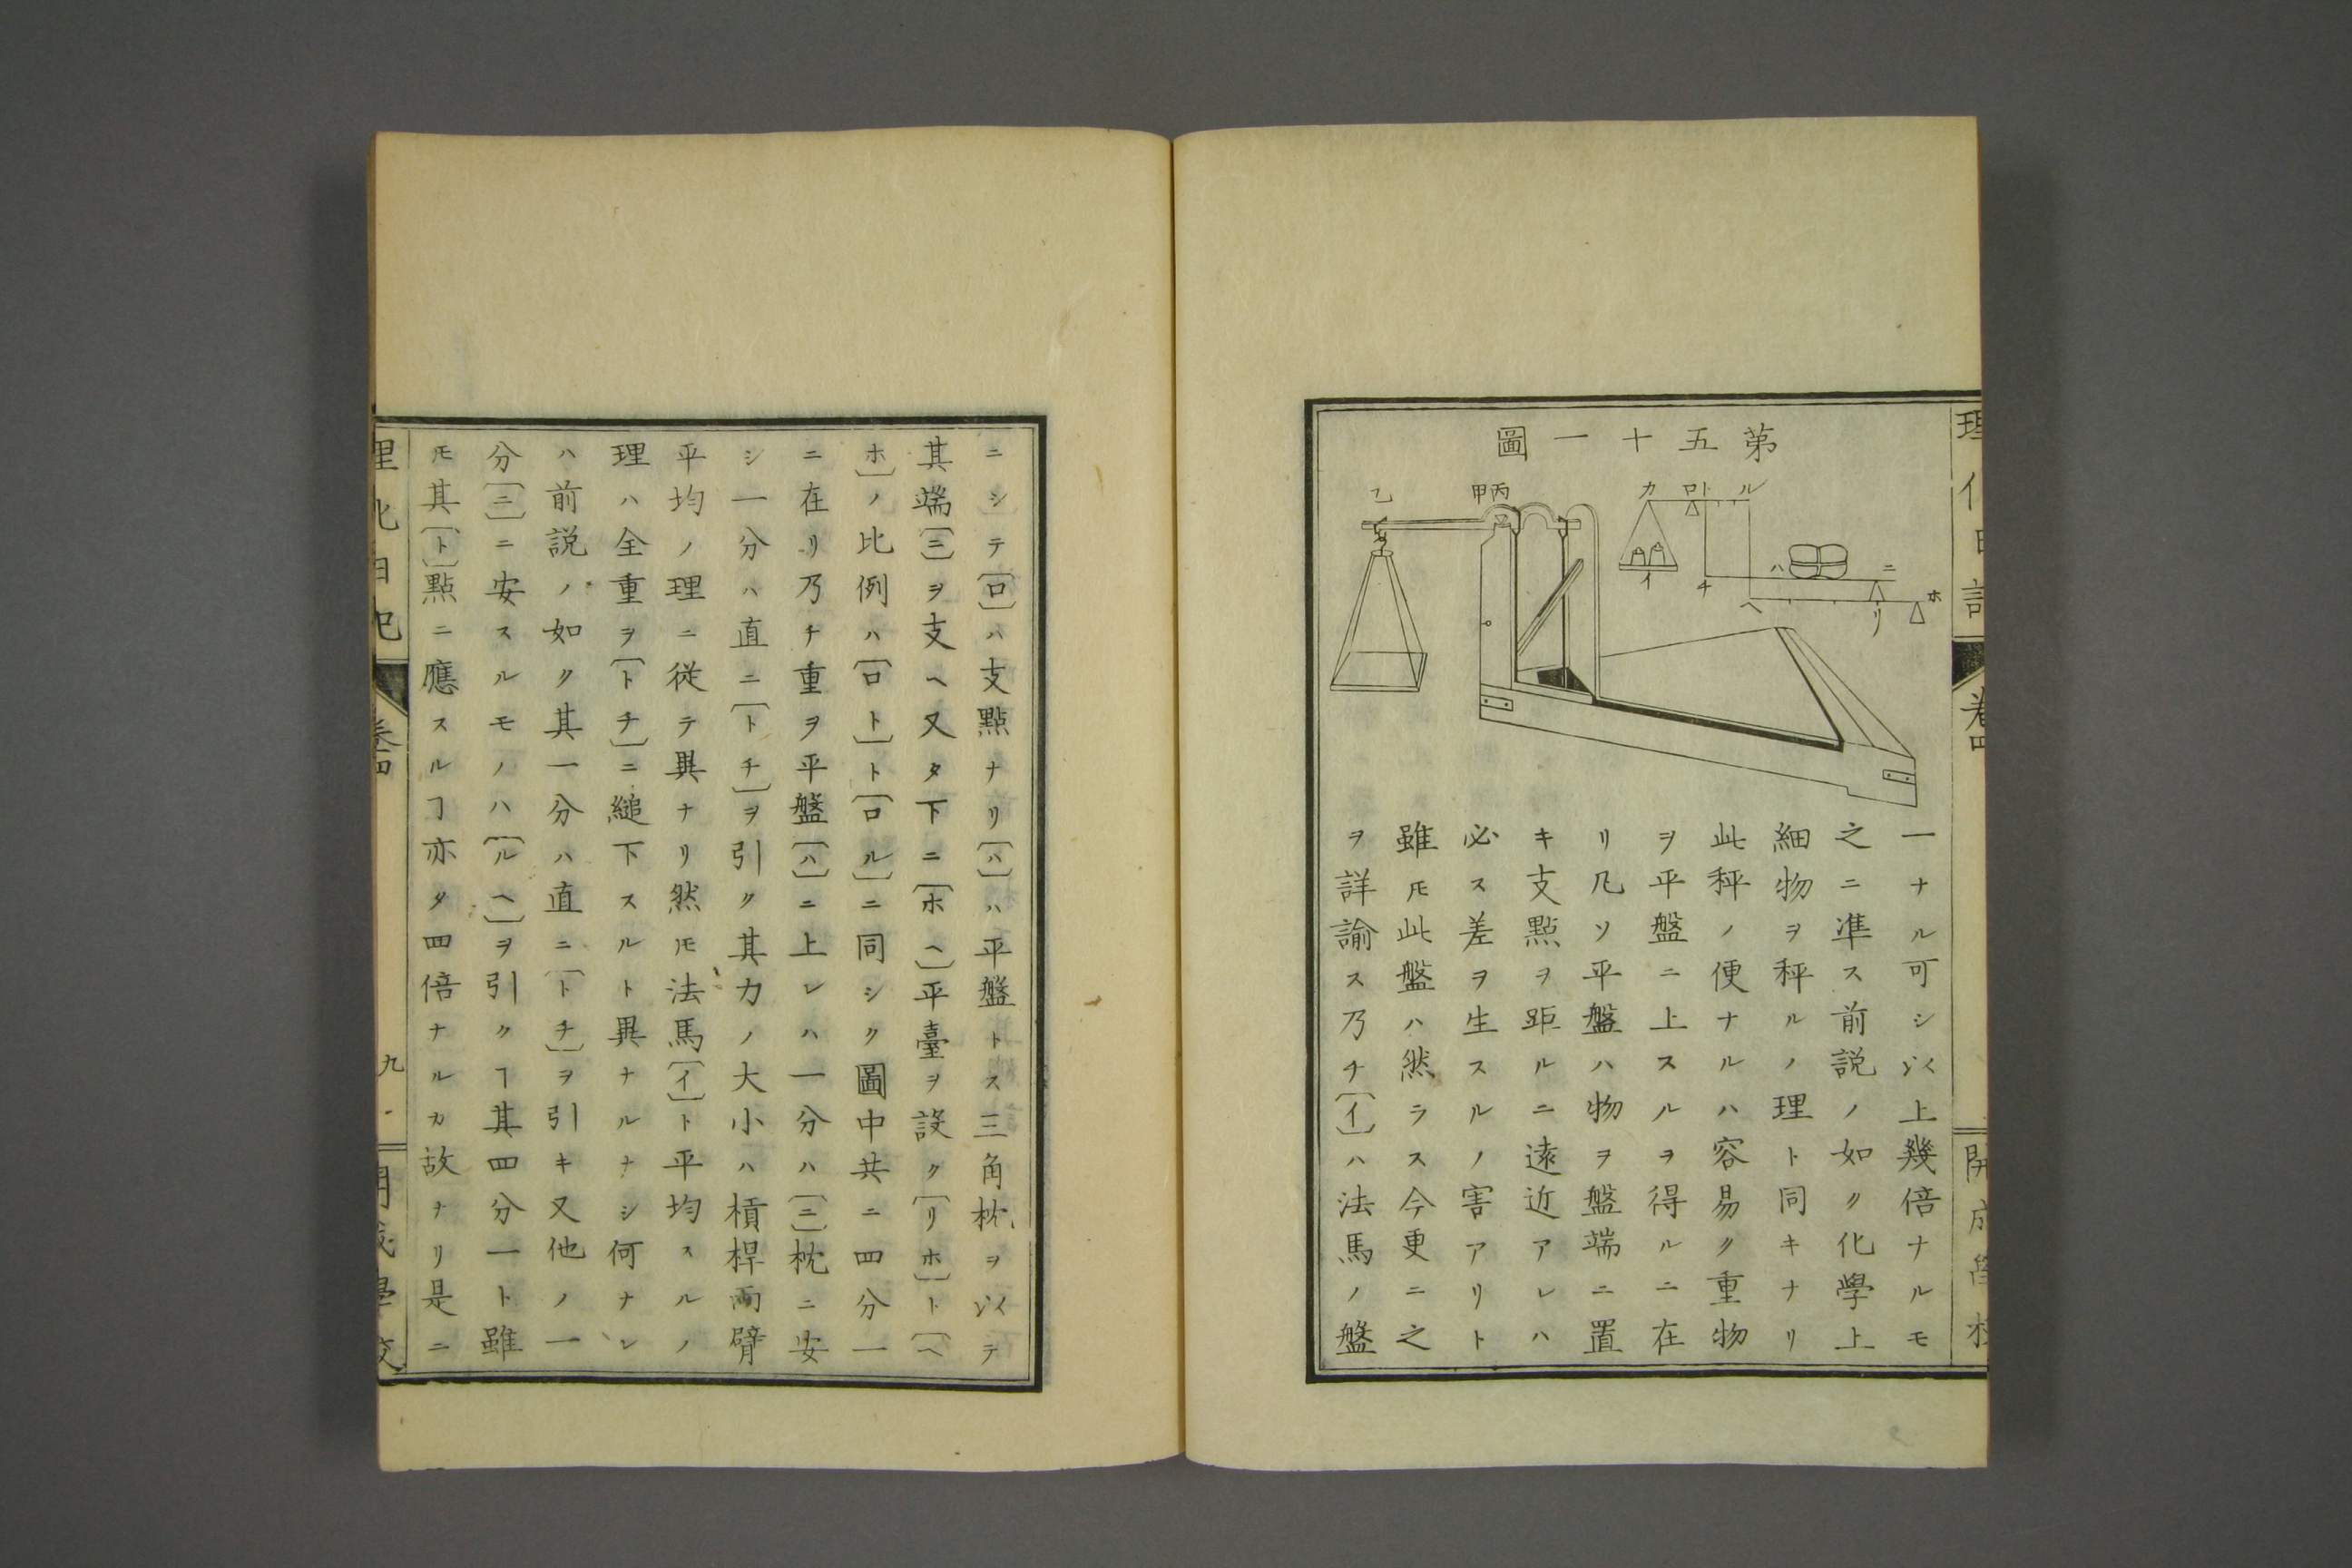 第五十一圖
乙
甲丙
カ
ロト
ル
イ
チ
ハ
ニ
ヘ
リ
ホ
一ナル可シ以上幾倍ナルモ
之ニ準ス前説ノ如ク化學上
細物ヲ秤ルノ理ト同キナリ
此秤ノ便ナルハ容易ク重物
ヲ平盤ニ上スルヲ得ルニ在
リ凡ソ平盤ハ物ヲ盤端ニ置
キ支點ヲ距ルニ遠近アレハ
必ス差ヲ生スルノ害アリト
雖𪜈此盤ハ然ラス今更ニ之
ヲ詳諭ス乃チ〔イ〕ハ法馬ノ盤
ニシテ〔ロ〕ハ支點ナリ〔ハ〕ハ平盤トス三角枕ヲ以テ
其端〔ニ〕ヲ支ヘ又タ下ニ〔ホヘ〕平臺ヲ設ク〔リホ〕ト〔ヘ
ホ〕ノ比例ハ〔ロト〕ト〔ロル〕ニ同シク圖中共ニ四分一
ニ在リ乃チ重ヲ平盤〔ハ〕ニ上レハ一分ハ〔ニ〕枕ニ安
シ一分ハ直ニ〔トチ〕ヲ引ク其力ノ大小ハ槓桿兩臂
平均ノ理ニ従テ異ナリ然𪜈法馬〔イ〕ト平均スルノ
理ハ全重ヲ〔トチ〕ニ縋下スルト異ナルナシ何ナレ
ハ前説ノ如ク其一分ハ直ニ〔トチ〕ヲ引キ又他ノ一
分〔ニ〕ニ安スルモノハ〔ルヘ〕ヲ引クヿ其四分一ト雖
𪜈其〔ト〕點ニ應スルヿ亦タ四倍ナルカ故ナリ是ニ
理化日記
卷四
九
開成學校